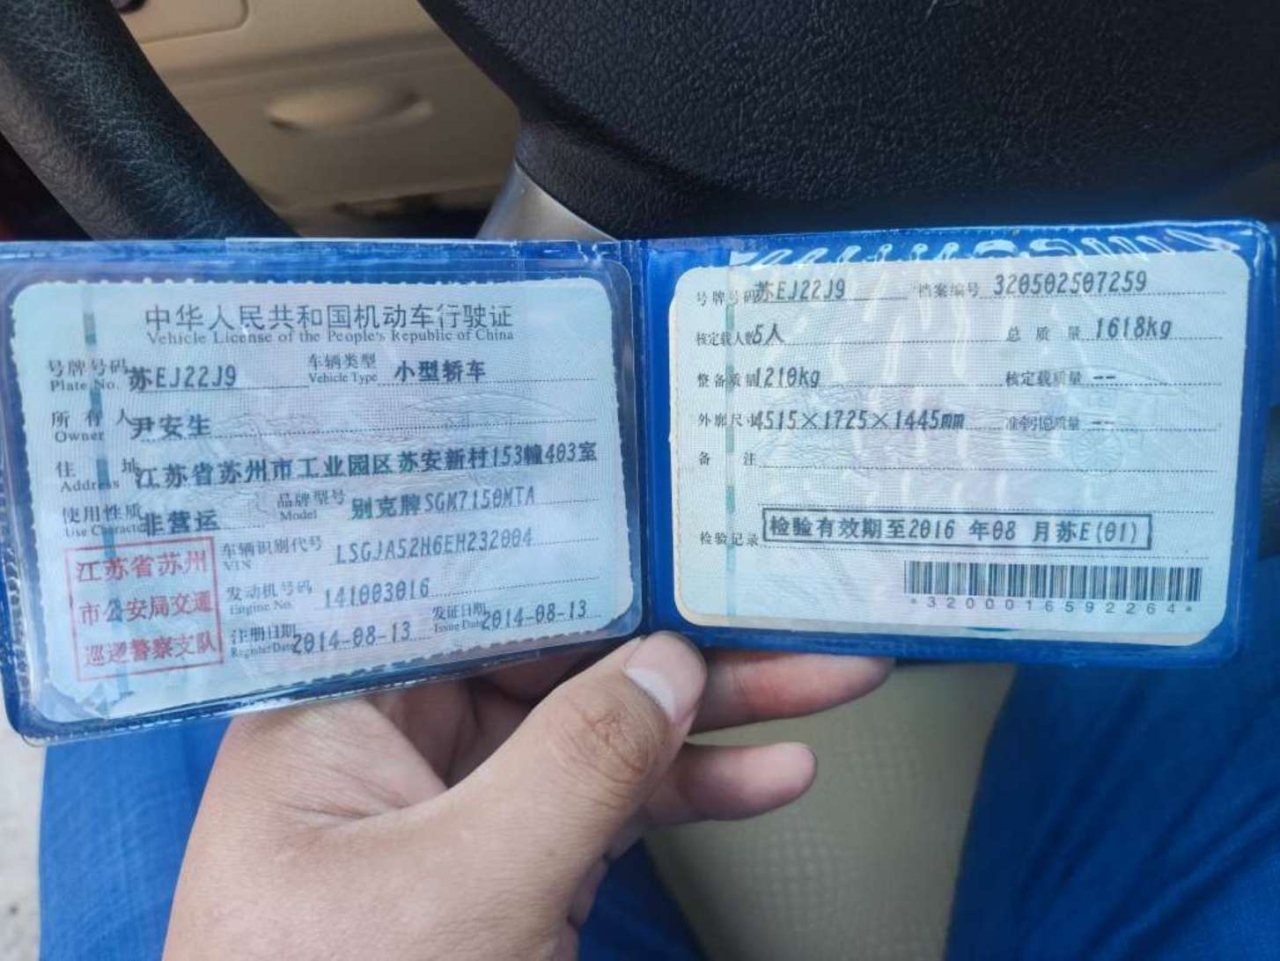 中华人民共和国机动车行驶证
Vehicle License of the People's Republic of China
号牌号码 苏EJ22J9 车辆类型 小型轿车
Plate No. Vehicle Type
所有人 尹安生
Owner
住址 江苏省苏州市工业园区苏安新村153幢403室
Address
使用性质 非营运 品牌型号 别克牌SGM7150MTA
Use Character Model
江苏省苏州
市公安局交通
巡逻警察支队
车辆识别代号 LSGJA52H6EH232004
VIN
发动机号码 141003016
Engine No.
注册日期 2014-08-13 发证日期 2014-08-13
Register Date Issue Date
号牌号码 苏EJ22J9 档案编号 320502507259
核定载人数 5人 总质量 1618kg
整备质量 1210kg 核定载质量 --
外廓尺寸 4515×1725×1445mm 准牵引总质量 --
备注
检验记录 检验有效期至2016 年08 月苏E(01)
*3200016592264*